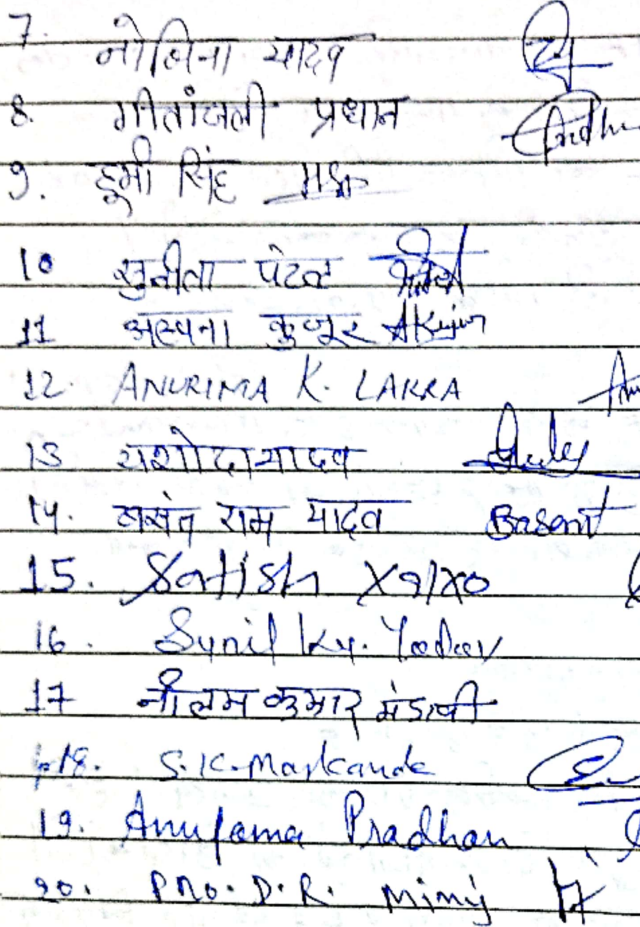 7. नोलिना यादव
8. गीतांजली प्रधान
9. हूमी सिंह
10 सुनीता पटेल
11 अल्पना कुजूर AKujur
12 ANURIMA K. LAKRA
13 यशोदा यादव
14. बसंत राम यादव Basant
15. Satish Xalxo
16. Sunil Ku. Yadav
17 नीलम कुमार मंडावी
18. S.K. Markande
19. Anupama Pradhan
20. PRO. D. R. Minj